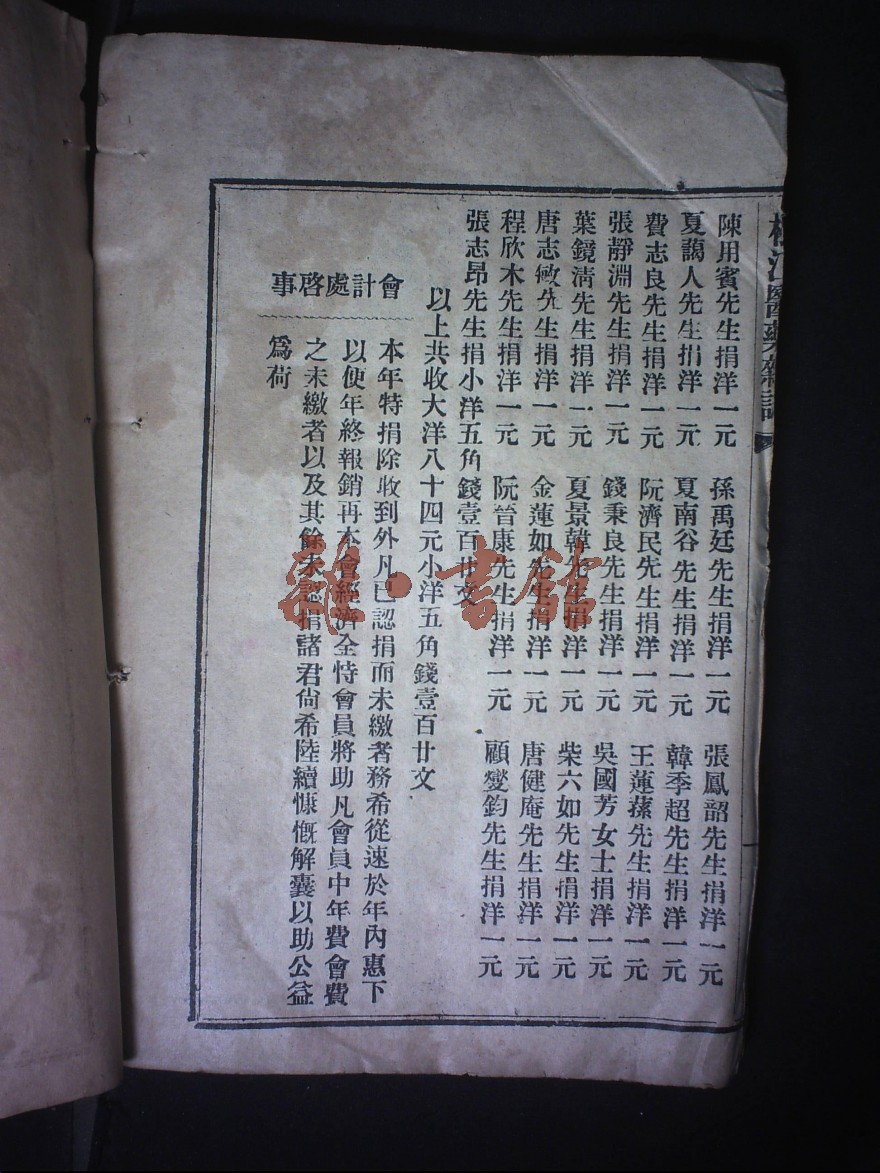 陳用賓先生捐洋一元 孫禹廷先生捐洋一元 張鳳韶先生捐洋一元
夏藹人先生捐洋一元 夏南谷先生捐洋一元 韓季超先生捐洋一元
費志良先生捐洋一元 阮濟民先生捐洋一元 王蓮蓀先生捐洋一元
張靜淵先生捐洋一元 錢秉良先生捐洋一元 吳國芳女士捐洋一元
葉鏡清先生捐洋一元 夏景韓先生捐洋一元 柴六如先生捐洋一元
唐志敏先生捐洋一元 金蓮如先生捐洋一元 唐健庵先生捐洋一元
程欣木先生捐洋一元 阮晉康先生捐洋一元 顧燮鈞先生捐洋一元
張志昂先生捐小洋五角錢壹百廿文
以上共收大洋八十四元小洋五角錢壹百廿文
會計處啓事
本年特捐除收到外凡已認捐而未繳者務希從速於年內惠下
以便年終報銷再本會經濟全恃會員將助凡會員中年費會費
之未繳者以及其餘未認捐諸君尙希陸續慷慨解囊以助公益
爲荷
書館